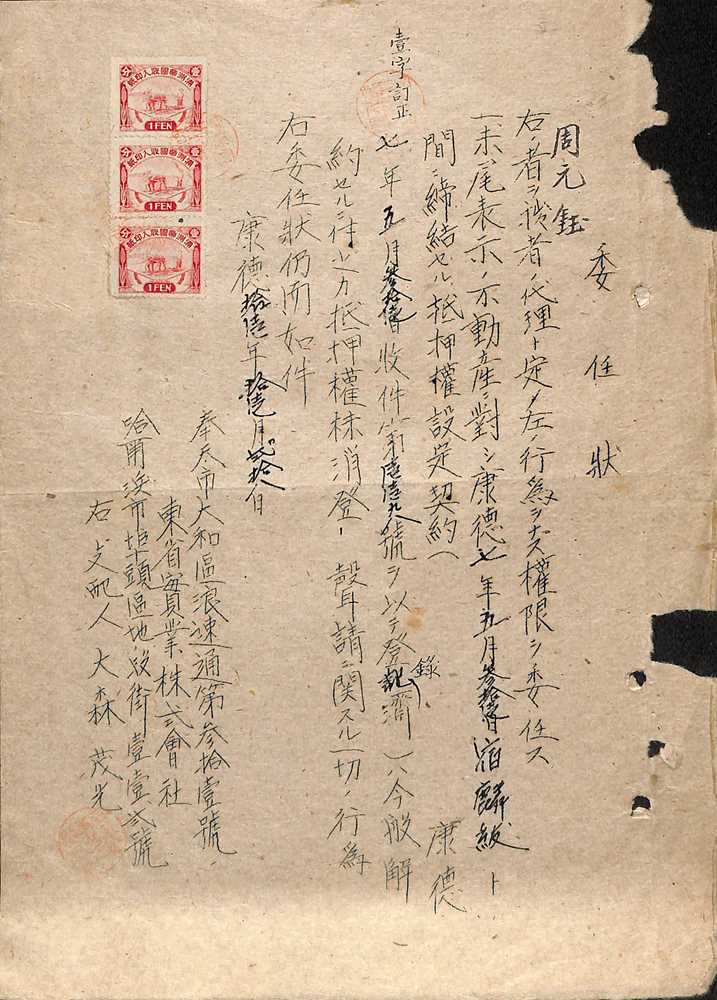 委任狀
周元鈺
右ノ者ヲ以テ者ノ代理ト定メ左ノ行為ヲナス權限ヲ委任ス
一、末尾表示ノ不動産ニ對シ康德七年五月參拾壹日宿麟紱ト
間ニ締結セル抵押權設定契約(康德
七年五月參拾壹日收件第壹壹九號ヲ以テ登錄濟)ハ今般解
約セルニ付之カ抵押權抹消登錄聲請ニ関スル一切ノ行為
右委任狀仍而如件
康德拾壹年拾壹月貳拾八日
奉天市大和區浪速通第參拾壹號
東省實業株式會社
哈爾浜市埠頭區地段街壹壹貳號
右支配人 大森茂光
壹字訂正
滿洲帝國收入印紙
壹分
1 FEN
滿洲帝國收入印紙
壹分
1 FEN
滿洲帝國收入印紙
壹分
1 FEN